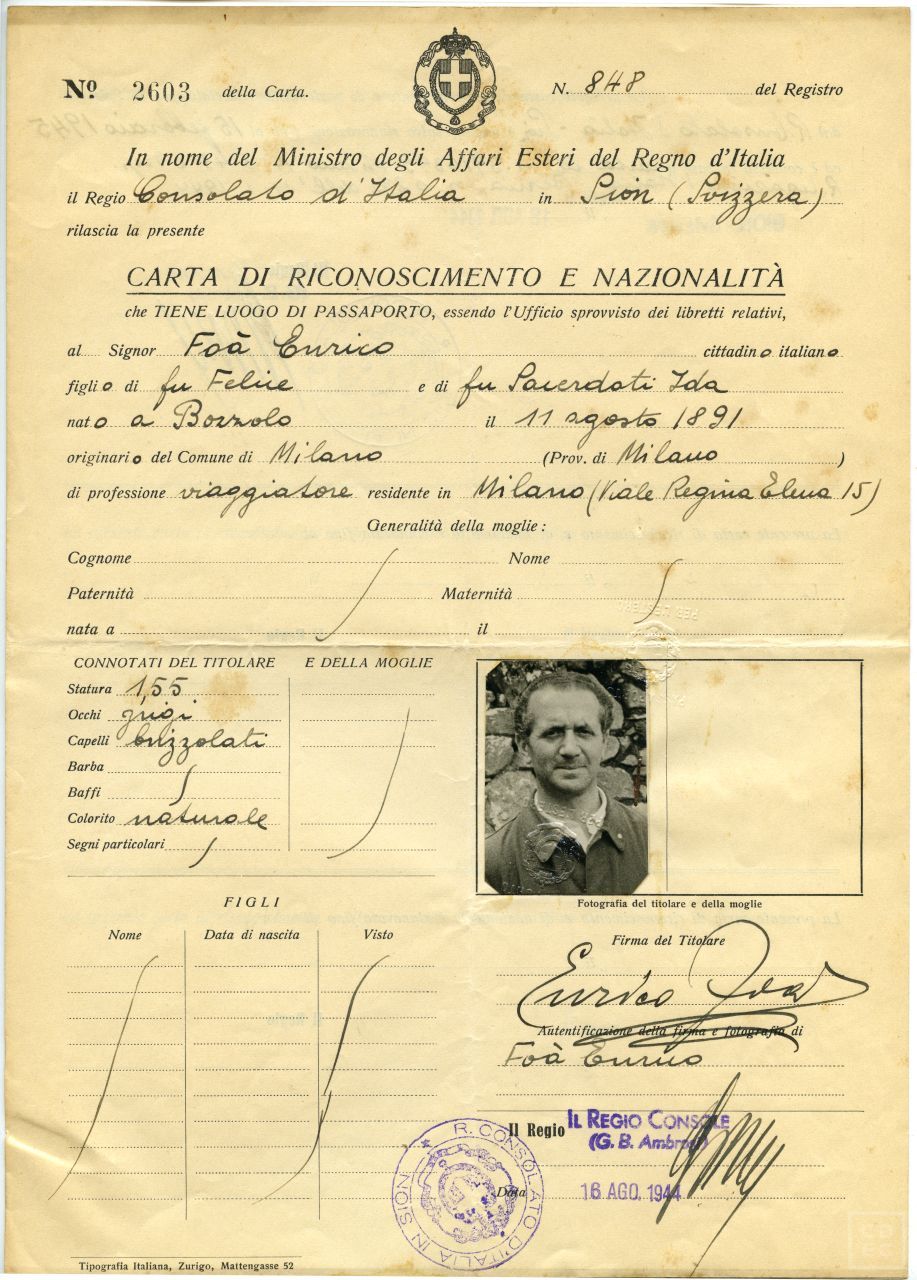 Nº 2603 della Carta. N. 848 del Registro
In nome del Ministro degli Affari Esteri del Regno d'Italia
il Regio Consolato d'Italia in Sion (Svizzera)
rilascia la presente
CARTA DI RICONOSCIMENTO E NAZIONALITÀ
che TIENE LUOGO DI PASSAPORTO, essendo l'Ufficio sprovvisto dei libretti relativi,
al Signor Foà Enrico cittadino italiano
figlio di fu Felice e di fu Sacerdoti Ida
nato a Bozzolo il 11 agosto 1891
originario del Comune di Milano (Prov. di Milano)
di professione viaggiatore residente in Milano (Viale Regina Elena 15)
Generalità della moglie:
Cognome Nome
Paternità Maternità
nata a il
CONNOTATI DEL TITOLARE E DELLA MOGLIE
Statura 1,55
Occhi grigi
Capelli brizzolati
Barba
Baffi
Colorito naturale
Segni particolari
Fotografia del titolare e della moglie
FIGLI
Nome Data di nascita Visto
Firma del Titolare
Enrico Foà
Autentificazione della firma e fotografia di
Foà Enrico
Il Regio IL REGIO CONSOLE
(G. B. Ambrosi)
Data 16 AGO. 1944
R. CONSOLATO D'ITALIA IN SION
Tipografia Italiana, Zurigo, Mattengasse 52